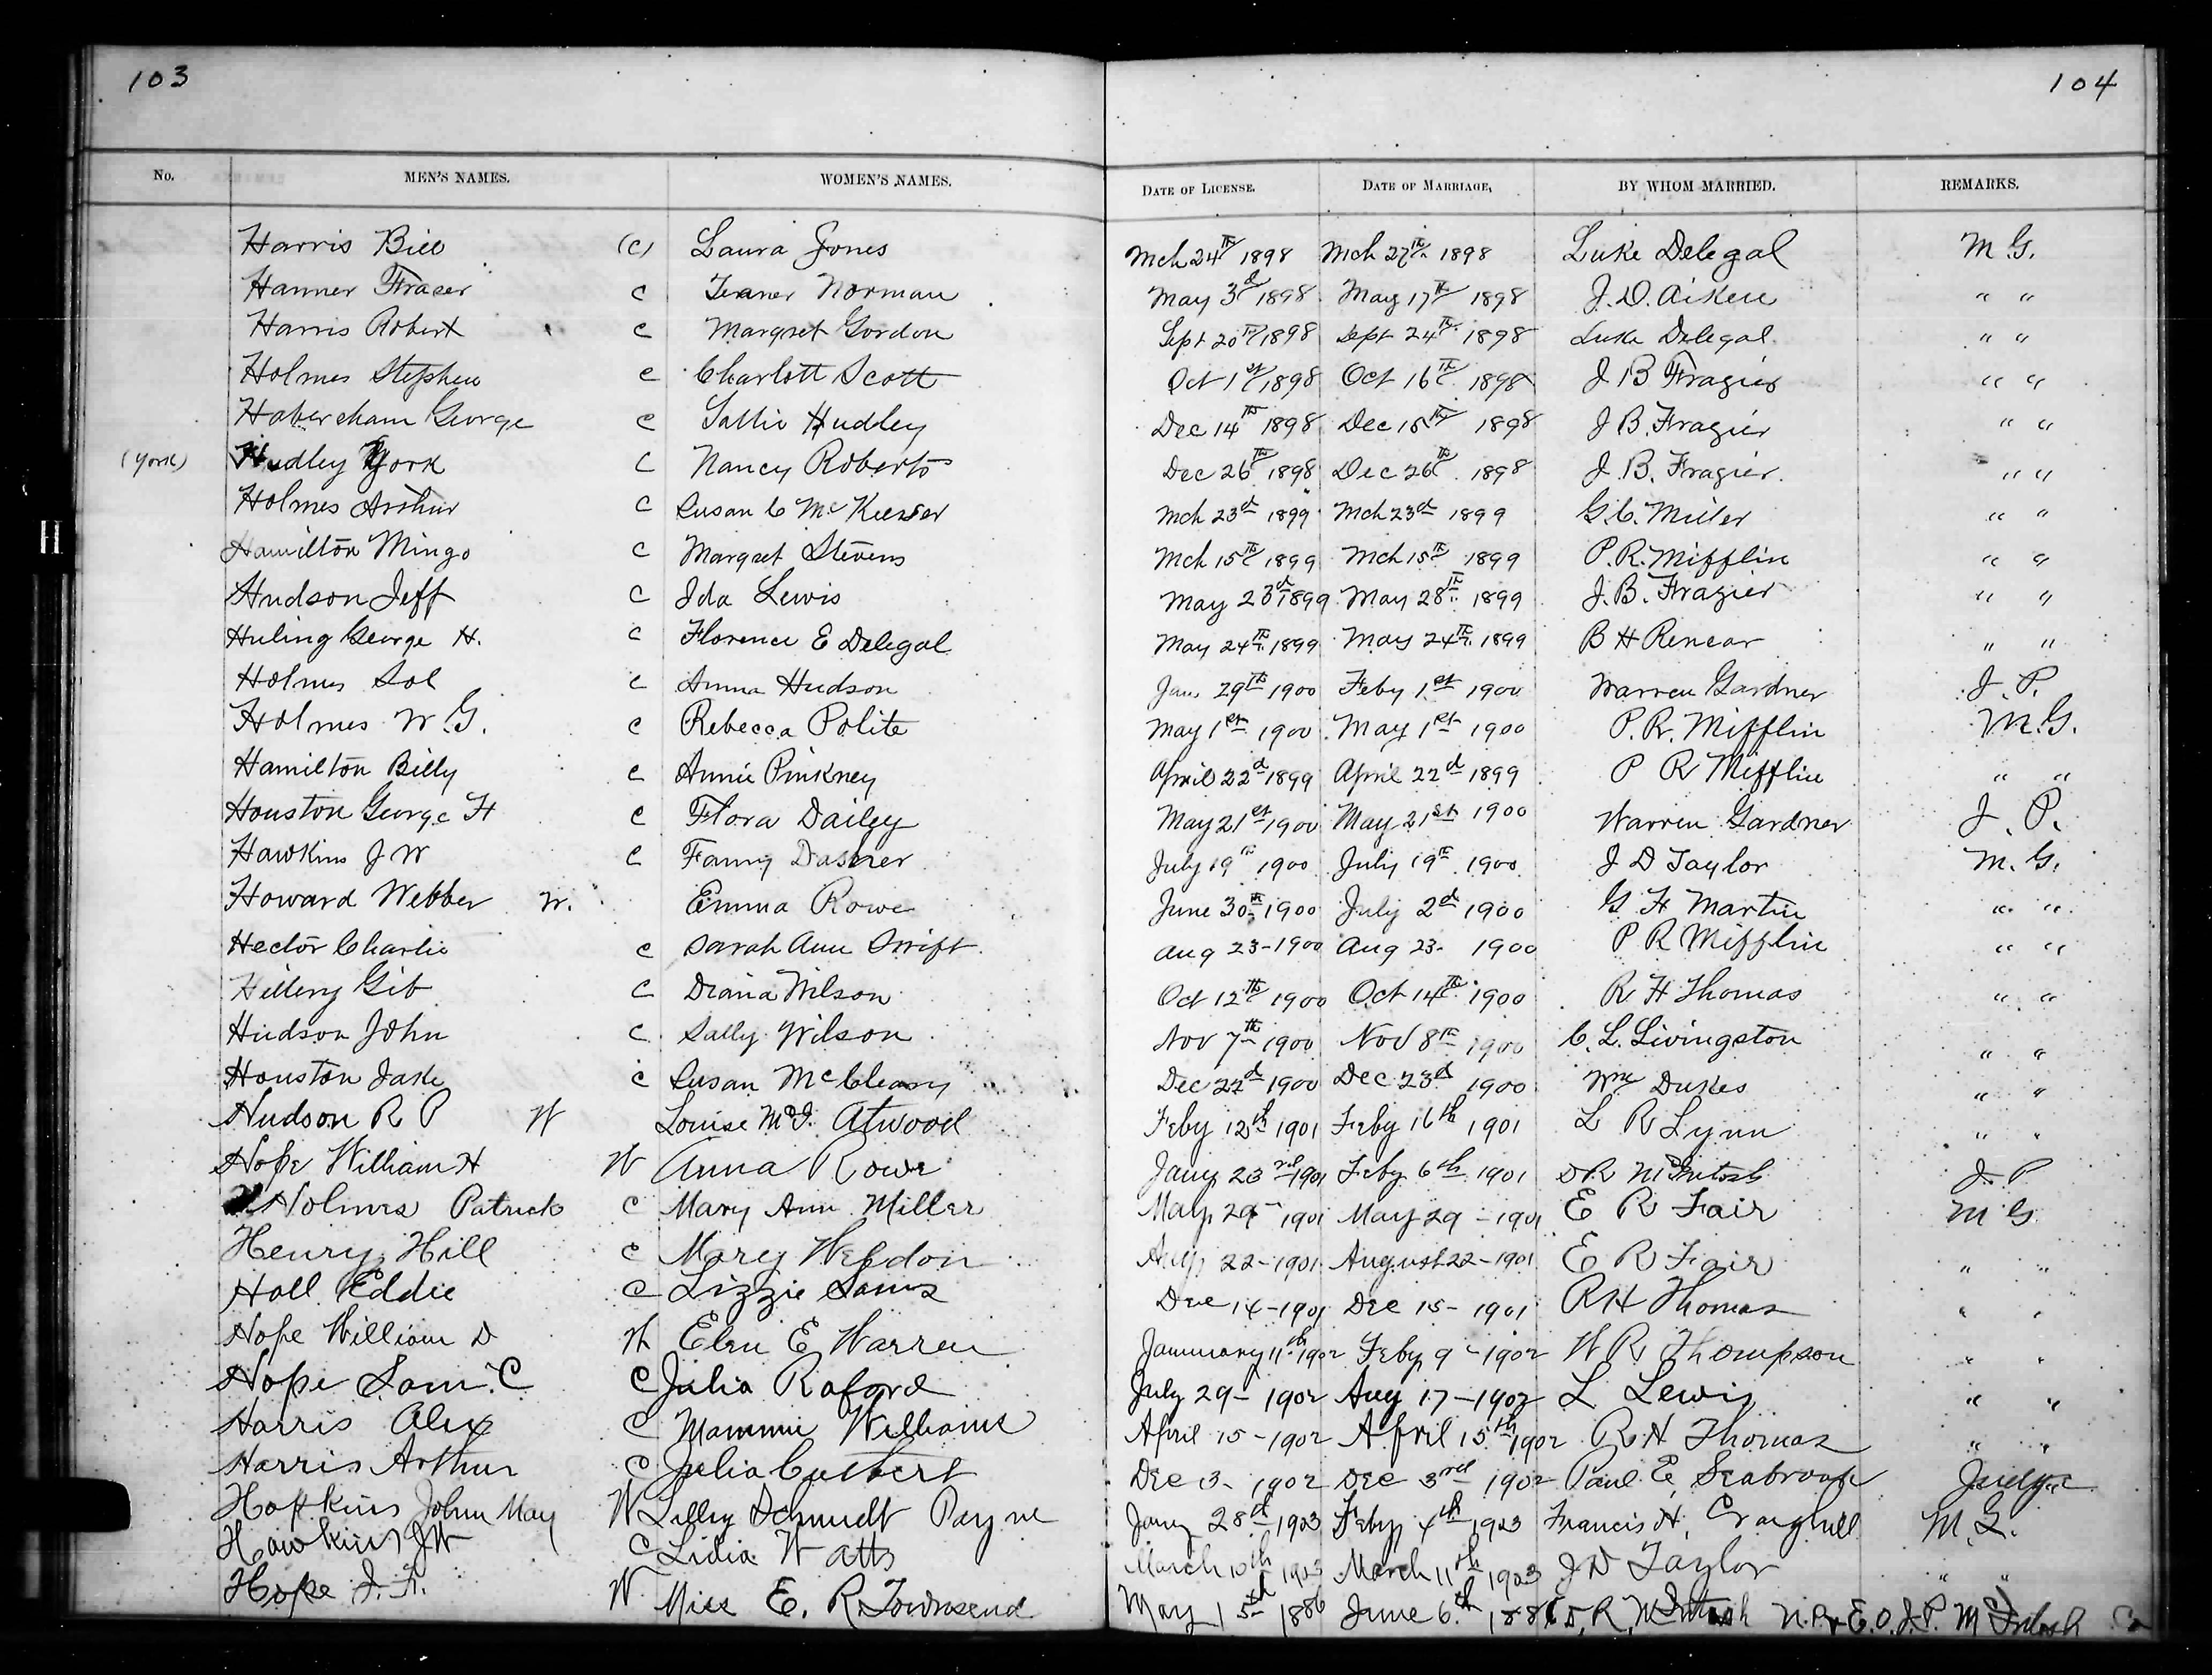 103
104
No. MEN'S NAMES. WOMEN'S NAMES. DATE OF LICENSE. DATE OF MARRIAGE, BY WHOM MARRIED. REMARKS.
Harris Bill (c) Laura Jones Mch 24th 1898 Mch 27th 1898 Luke Delegal M.G.
Hanner Fraser c Norman May 3d 1898 May 17th 1898 J.D. Aiken " "
Harris Robert c Margret Gordon Sept 20th 1898 Sept 24th 1898 Luke Delegal " "
Holmes Stephen c Charlott Scott Oct 1st 1898 Oct 16th 1898 J B Frazier " "
Habersham George c Sallie Hudley Dec 14th 1898 Dec 18th 1898 J B. Frazier " "
(York) Hudley York c Nancy Roberts Dec 26th 1898 Dec 26th 1898 J. B. Frazier. " "
Holmes Arthur c Susan C Mch 23d 1899 Mch 23d 1899 G.C. Miller " "
Hamilton Mingo c Margret Stevens Mch 15th 1899 Mch 15th 1899 P.R. Mifflin " "
Hudson Jeff c Ida Lewis May 23d 1899 May 28th 1899 J.B. Frazier " "
Huling George H. c Florence E Delegal May 24th 1899 May 24th 1899 B H Renear " "
Holmes Sol c Anna Hudson Jan 29th 1900 Feby 1st 1900 Warren Gardner J. P.
Holmes W.G. c Rebecca Polite May 1st 1900 May 1st 1900 P.R. Mifflin M.G.
Hamilton Billy c Annie Pinkney April 22d 1899 April 22d 1899 P R Mifflin " "
Houston George H c Flora Dailey May 21st 1900 May 21st 1900 Warren Gardner J. P.
Hawkins J W c Fanny July 19th 1900 July 19th 1900 J D Taylor M. G.
Howard Webber W. Emma Rowe June 30th 1900 July 2d 1900 G H Martin " "
Hector Charlie c Sarah Ann Swift Aug 23-1900 Aug 23- 1900 P R Mifflin " "
Hillery Gib c Diana Wilson Oct 12th 1900 Oct 14th 1900 R H Thomas " "
Hudson John c Sally Wilson Nov 7th 1900 Nov 8th 1900 C. L. Livingston " "
Houston Jake c Susan McCleary Dec 22d 1900 Dec 23d 1900 Wm Dukes " "
Hudson R P W Louise McI. Atwood Feby 12th 1901 Feby 16th 1901 L R Lynn " "
Hope William H W Anna Rowe Jany 23rd 1901 Feby 6th 1901 D R McIntosh J. P
Holmes Patrick c Mary Ann Miller May 29- 1901 May 29-1901 E R Fair M G
Henry Hill c Mary Aug 22-1901 August 22-1901 E R Fair " "
Hall Eddie c Lizzie Sams Dec 14-1901 Dec 15- 1901 R H Thomas " "
Hope William D W Elen E Warren Jannuary 11th 1902 Feby 9-1902 W R Thompson " "
Hope Sam. C C Julia Raford July 29- 1902 Aug 17-1902 L Lewis " "
Harris Alex C Mammie Williams April 15-1902 April 15th 1902 R. H Thomas " "
Harris Arthur C Julia Cutbert Dec 3- 1902 Dec 3rd 1902 Paul E. Seabrook Judge
Hopkins John May W Lilley Schmidt Payne Jany 28th 1903 Feby 4th 1903 Francis H. Craighill M. G.
Hawkins J W C Lidia Watts March 10th 1903 March 11th 1903 J D Taylor " "
Hope J. A. W Miss E. R. Townsend May 15th 1886 June 6th 1886 D. R. McIntosh N.P. & E.O. J.P. McIntosh Co
H